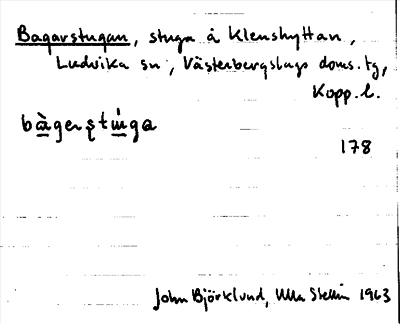 Bagarstugan, stuga å Klenshyttan,
Ludvika sn, Västerbergslags doms. tg,
Kopp. l.
bàgerştùga
178
John Björklund, Ulla Stellin 1963